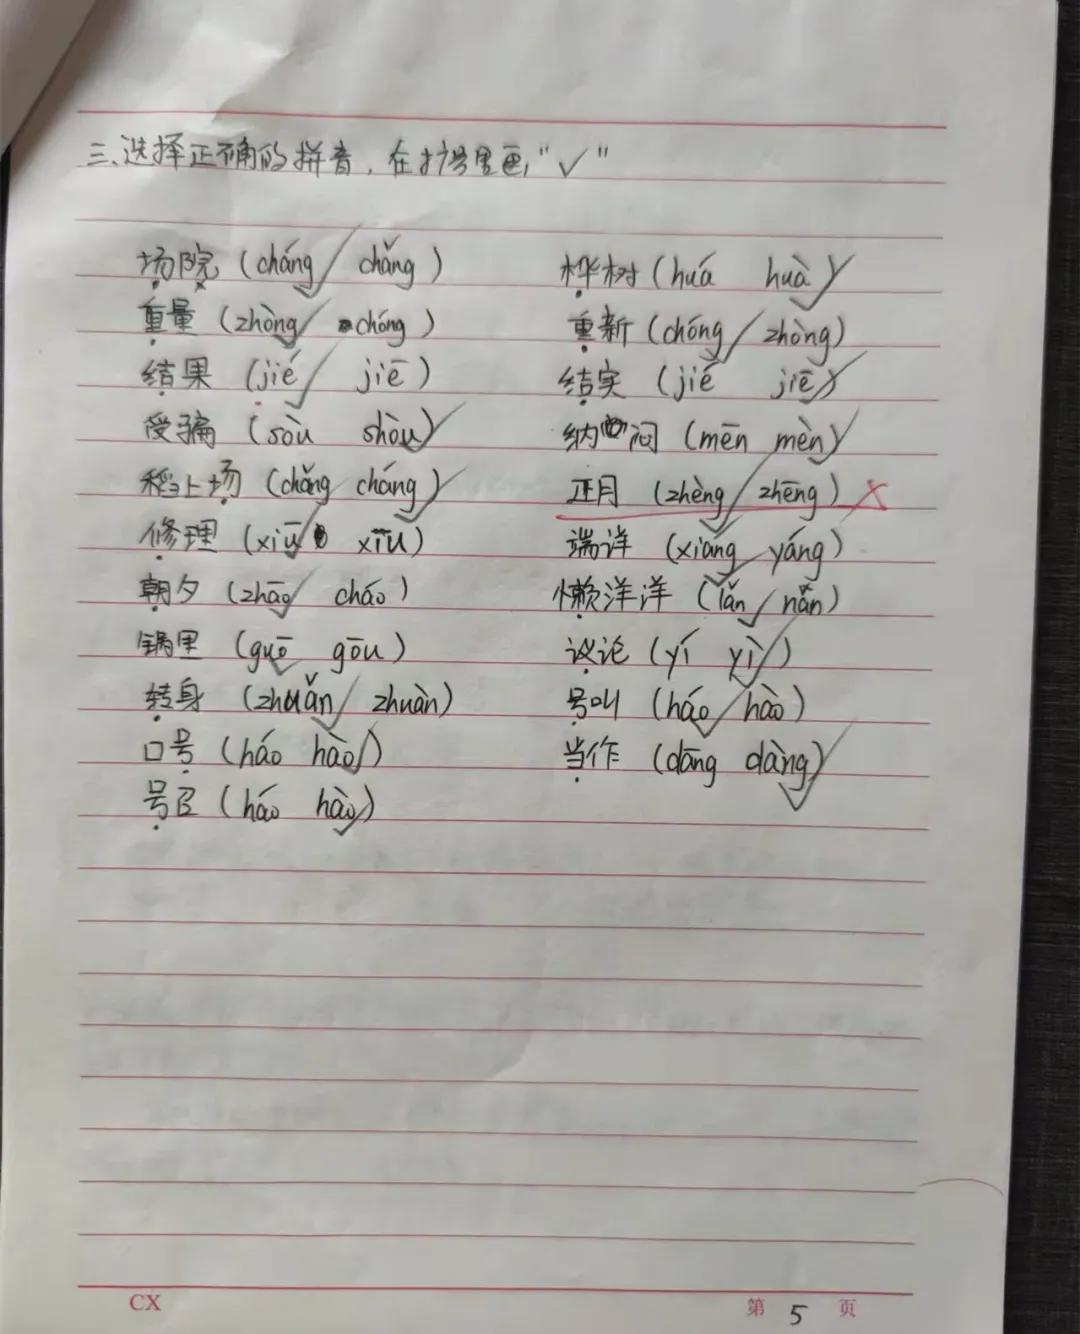 三、选择正确的拼音，在扩号里画"✓"
场院（cháng chǎng） 桦树（huá huà）
重量（zhòng chóng） 重新（chóng zhòng）
结果（jié jiē） 结实（jié jiē）
受骗（sòu shòu） 纳闷（mēn mèn）
稻上场（chǎng cháng） 正月（zhèng zhēng）
修理（xiū xīu） 端详（xiang yáng）
朝夕（zhāo cháo） 懒洋洋（lǎn nǎn）
锅里（guō gōu） 议论（yí yì）
转身（zhuǎn zhuàn） 号叫（háo hào）
口号（háo hào） 当作（dāng dàng）
号召（háo hào）
CX
第 5 页